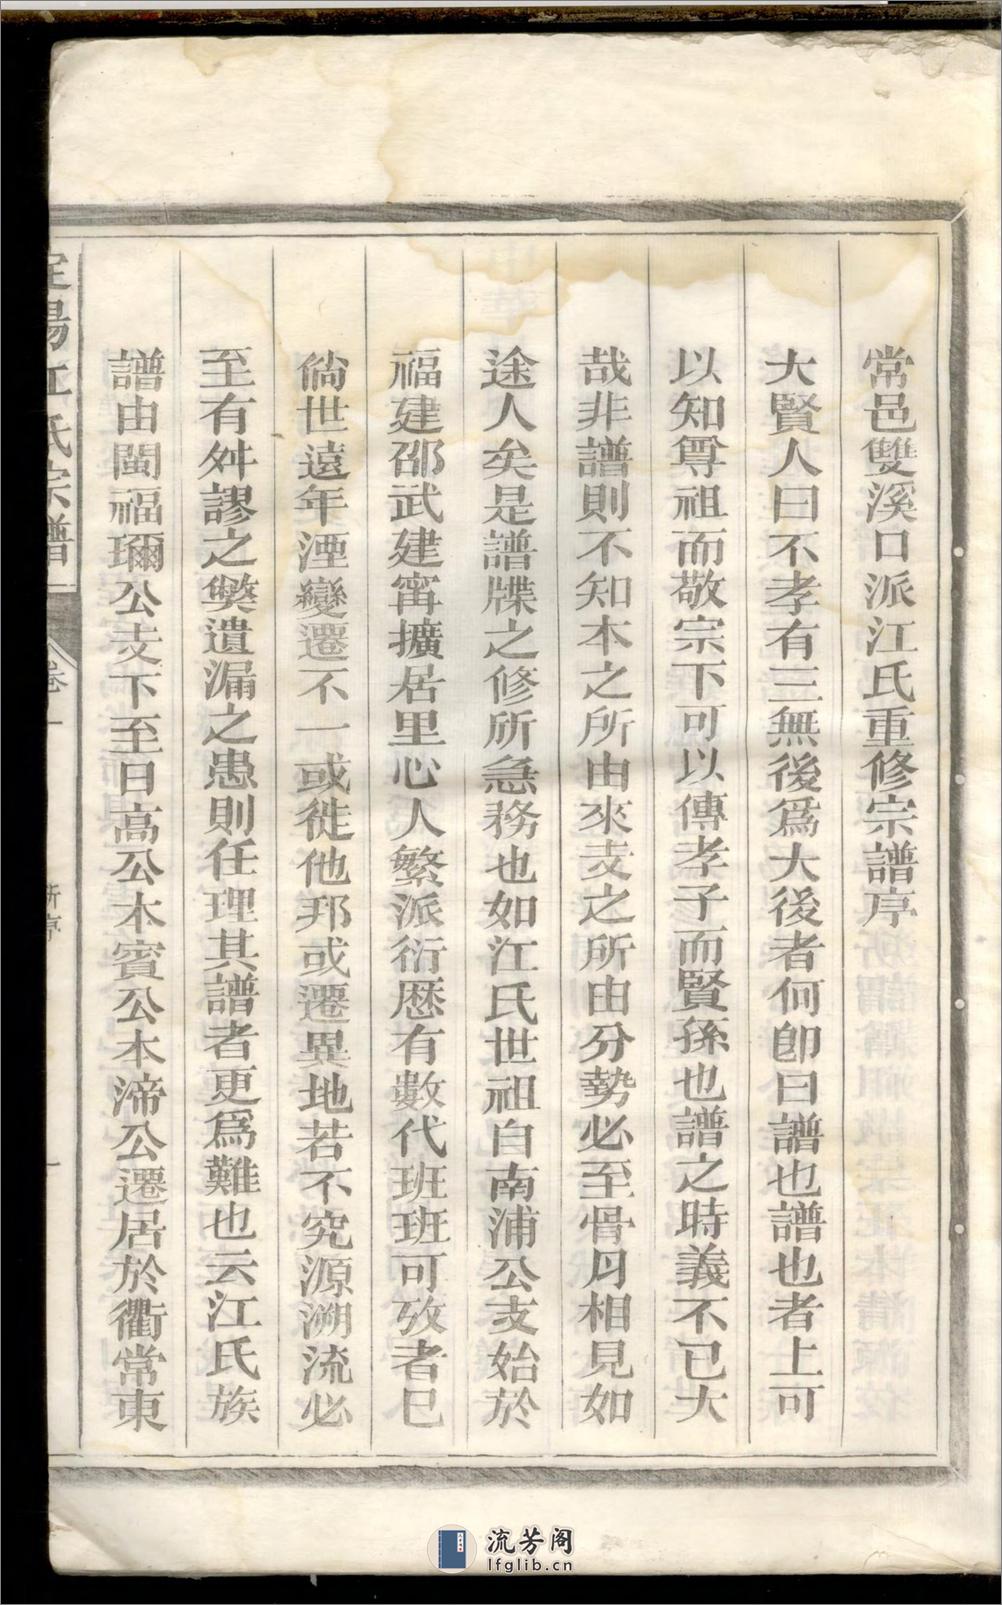 常邑雙溪口派江氏重修宗譜序
大賢人曰不孝有三無後爲大後者何卽曰譜也譜也者上可
以知尊祖而敬宗下可以傳孝子而賢孫也譜之時義不已大
哉非譜則不知本之所由來支之所由分勢必至骨肉相見如
途人矣是譜牒之修所急務也如江氏世祖自南浦公支始於
福建邵武建甯擴居里心人繁派衍歷有數代班班可攷者巳
倘世遠年湮變遷不一或徙他邦或遷異地若不究源溯流必
至有舛謬之獘遺漏之患則任理其譜者更爲難也云江氏族
譜由閩福璽公支下至日高公木賓公本渧公遷居於衢常東
定陽江氏宗譜
卷一
新序
一
流芳阁
lfglib.cn